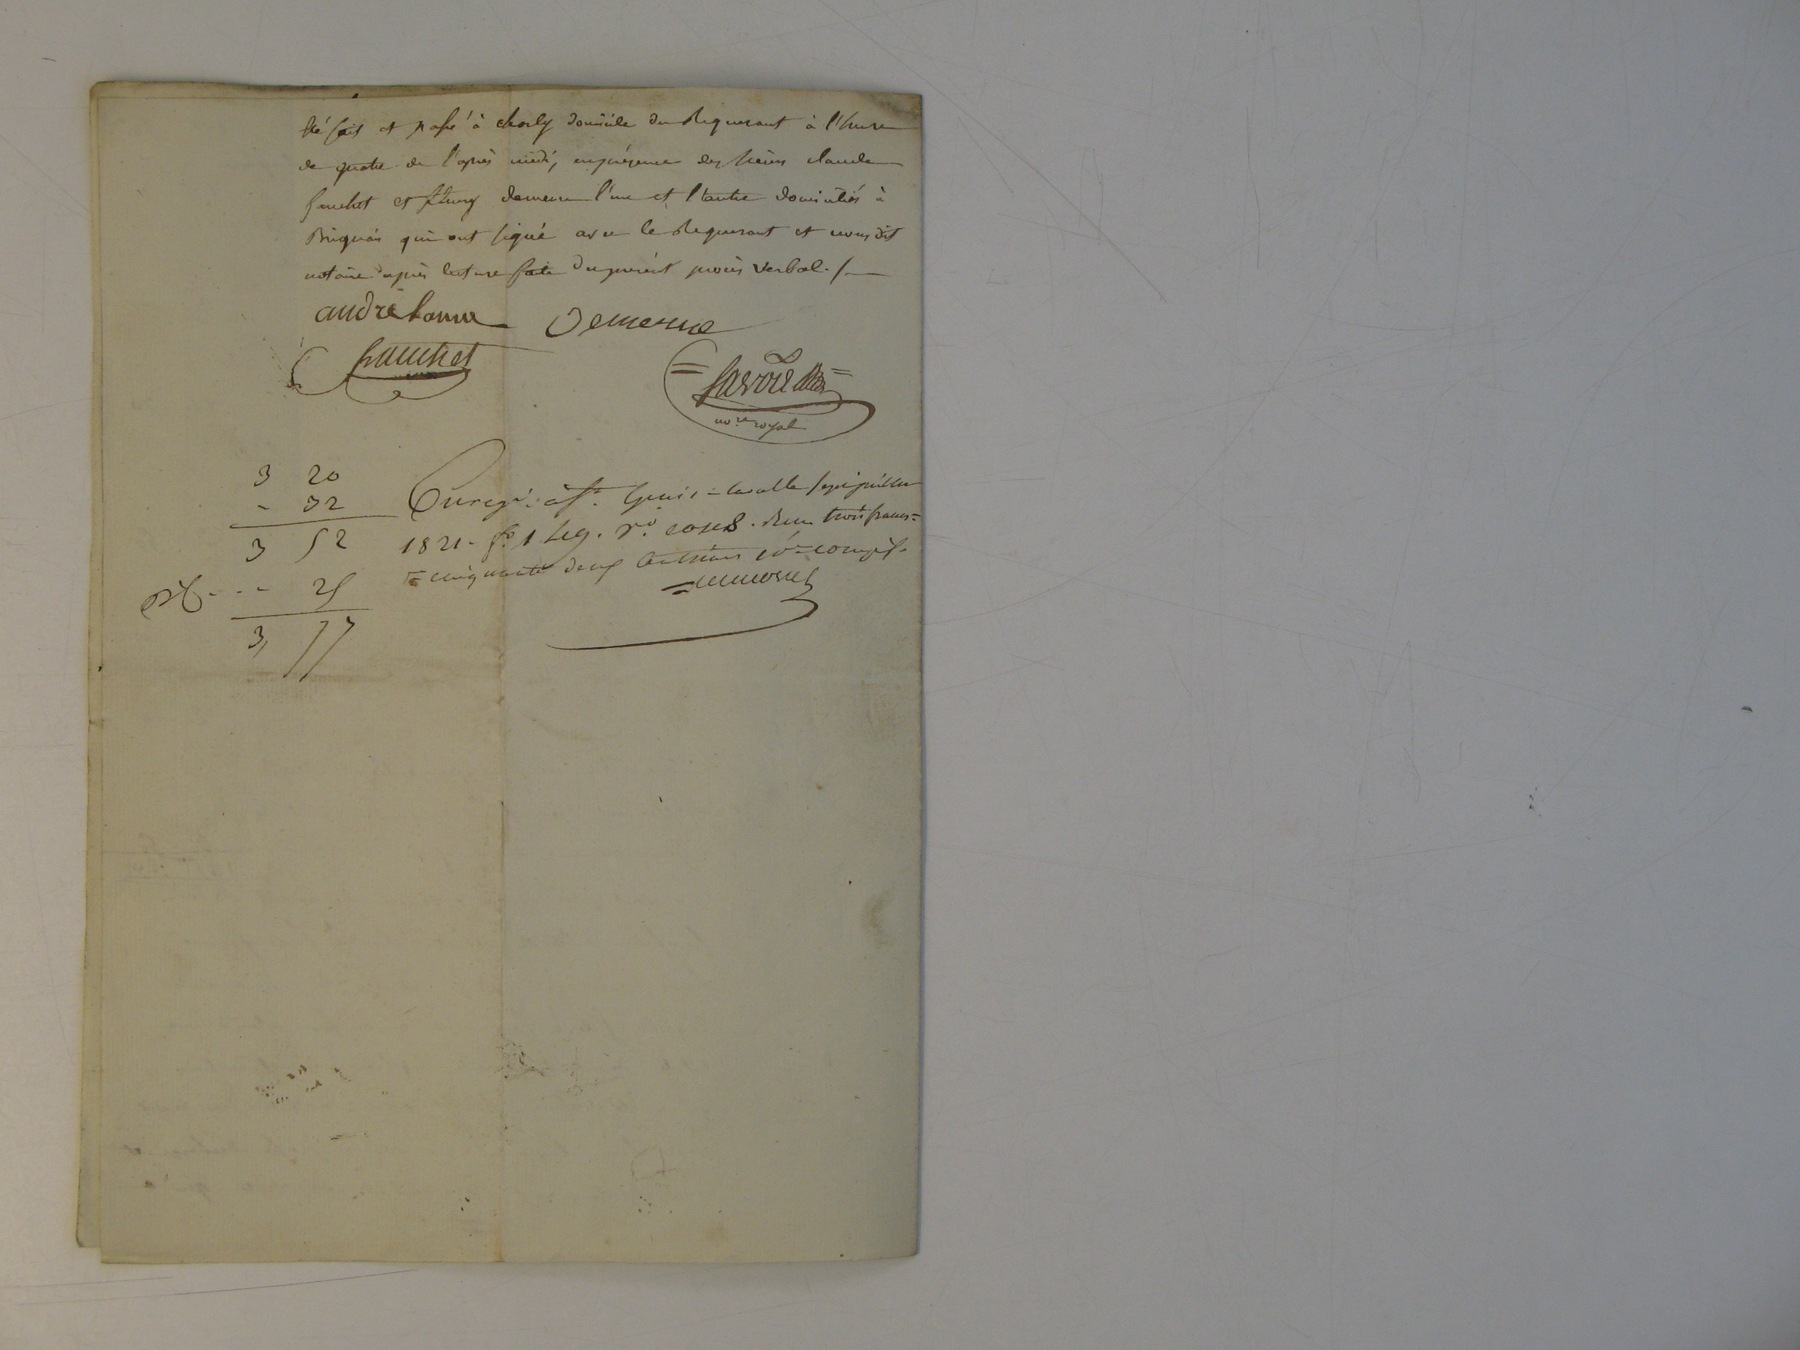 été fait et passé à charly domicile du Requerant à l'heure
de quatre de l'après midi, en présence des sieurs claude
fauchet et fleury demeure l'un et l'autre domiciliés à
Brignais qui ont signé avec le Requerant et nous dit
notaire après lecture faite du present procès verbal. /.
andré
Demeure
fauchet
nore royal
3 20
- 32
3 52
- - 25
3, 77
Enregé. à St. Genis = Laval le six juillet
1821. fo. 149. ro. case 8. Reçu trois francs =
= cinquante deux centimes 10e compris.